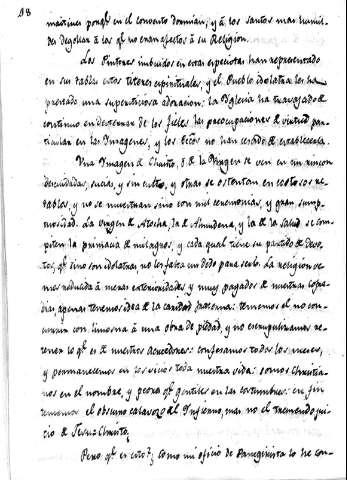 98
maitines porq.e en el convento dormian; y à los santos mas humil-
des degollar à los q.e no eran afectos à su Religion.
Los Pintores imbuidos en estas especiotas han representado
en sus tablas estos titeres espirituales, y el Pueblo idolatra les ha
prestado una supersticiosa adoracion: la Yglesia ha trabajado de
continuo en desterrar de los fieles las preocupaciones de virtud par-
ticular en las Imagenes, y los Ecc.os no han cesado de establecerla.
Una Imagen de Christo, ò de la Virgen se ven en un rincon
descuidadas, sucias, y sin culto, y otras se ostentan en costosos re-
tablos, y no se muestran sino con mil ceremonias, y gran sump-
tuosidad. La virgen de Atocha, la de Almudena, y la de la Salud se com-
piten la primacia de milagros, y cada qual tiene su partido de Devo-
tos, q.e sino son idolatras no les falta un dedo para serlo. La religion ve-
mos reducida à meras exterioridades y muy pagados de nuestras cofra-
dias apenas tenemos idea de la caridad fraterna: tenemos el no con-
currir con limosna à una obra de piedad, y no escrupulizamos re-
tener lo q.e es de nuestros Acreedores: confesamos todos los meses,
y permanecemos en los vicios toda nuestra vida: somos Christia-
nos en el nombre, y peores q.e gentiles en las costumbres: en fin
tememos el obscuro calavozo del Infierno, mas no el tremendo jui-
cio de Jesu Christo.
Pero q.e es esto? como mi oficio de Panegirista lo he con-